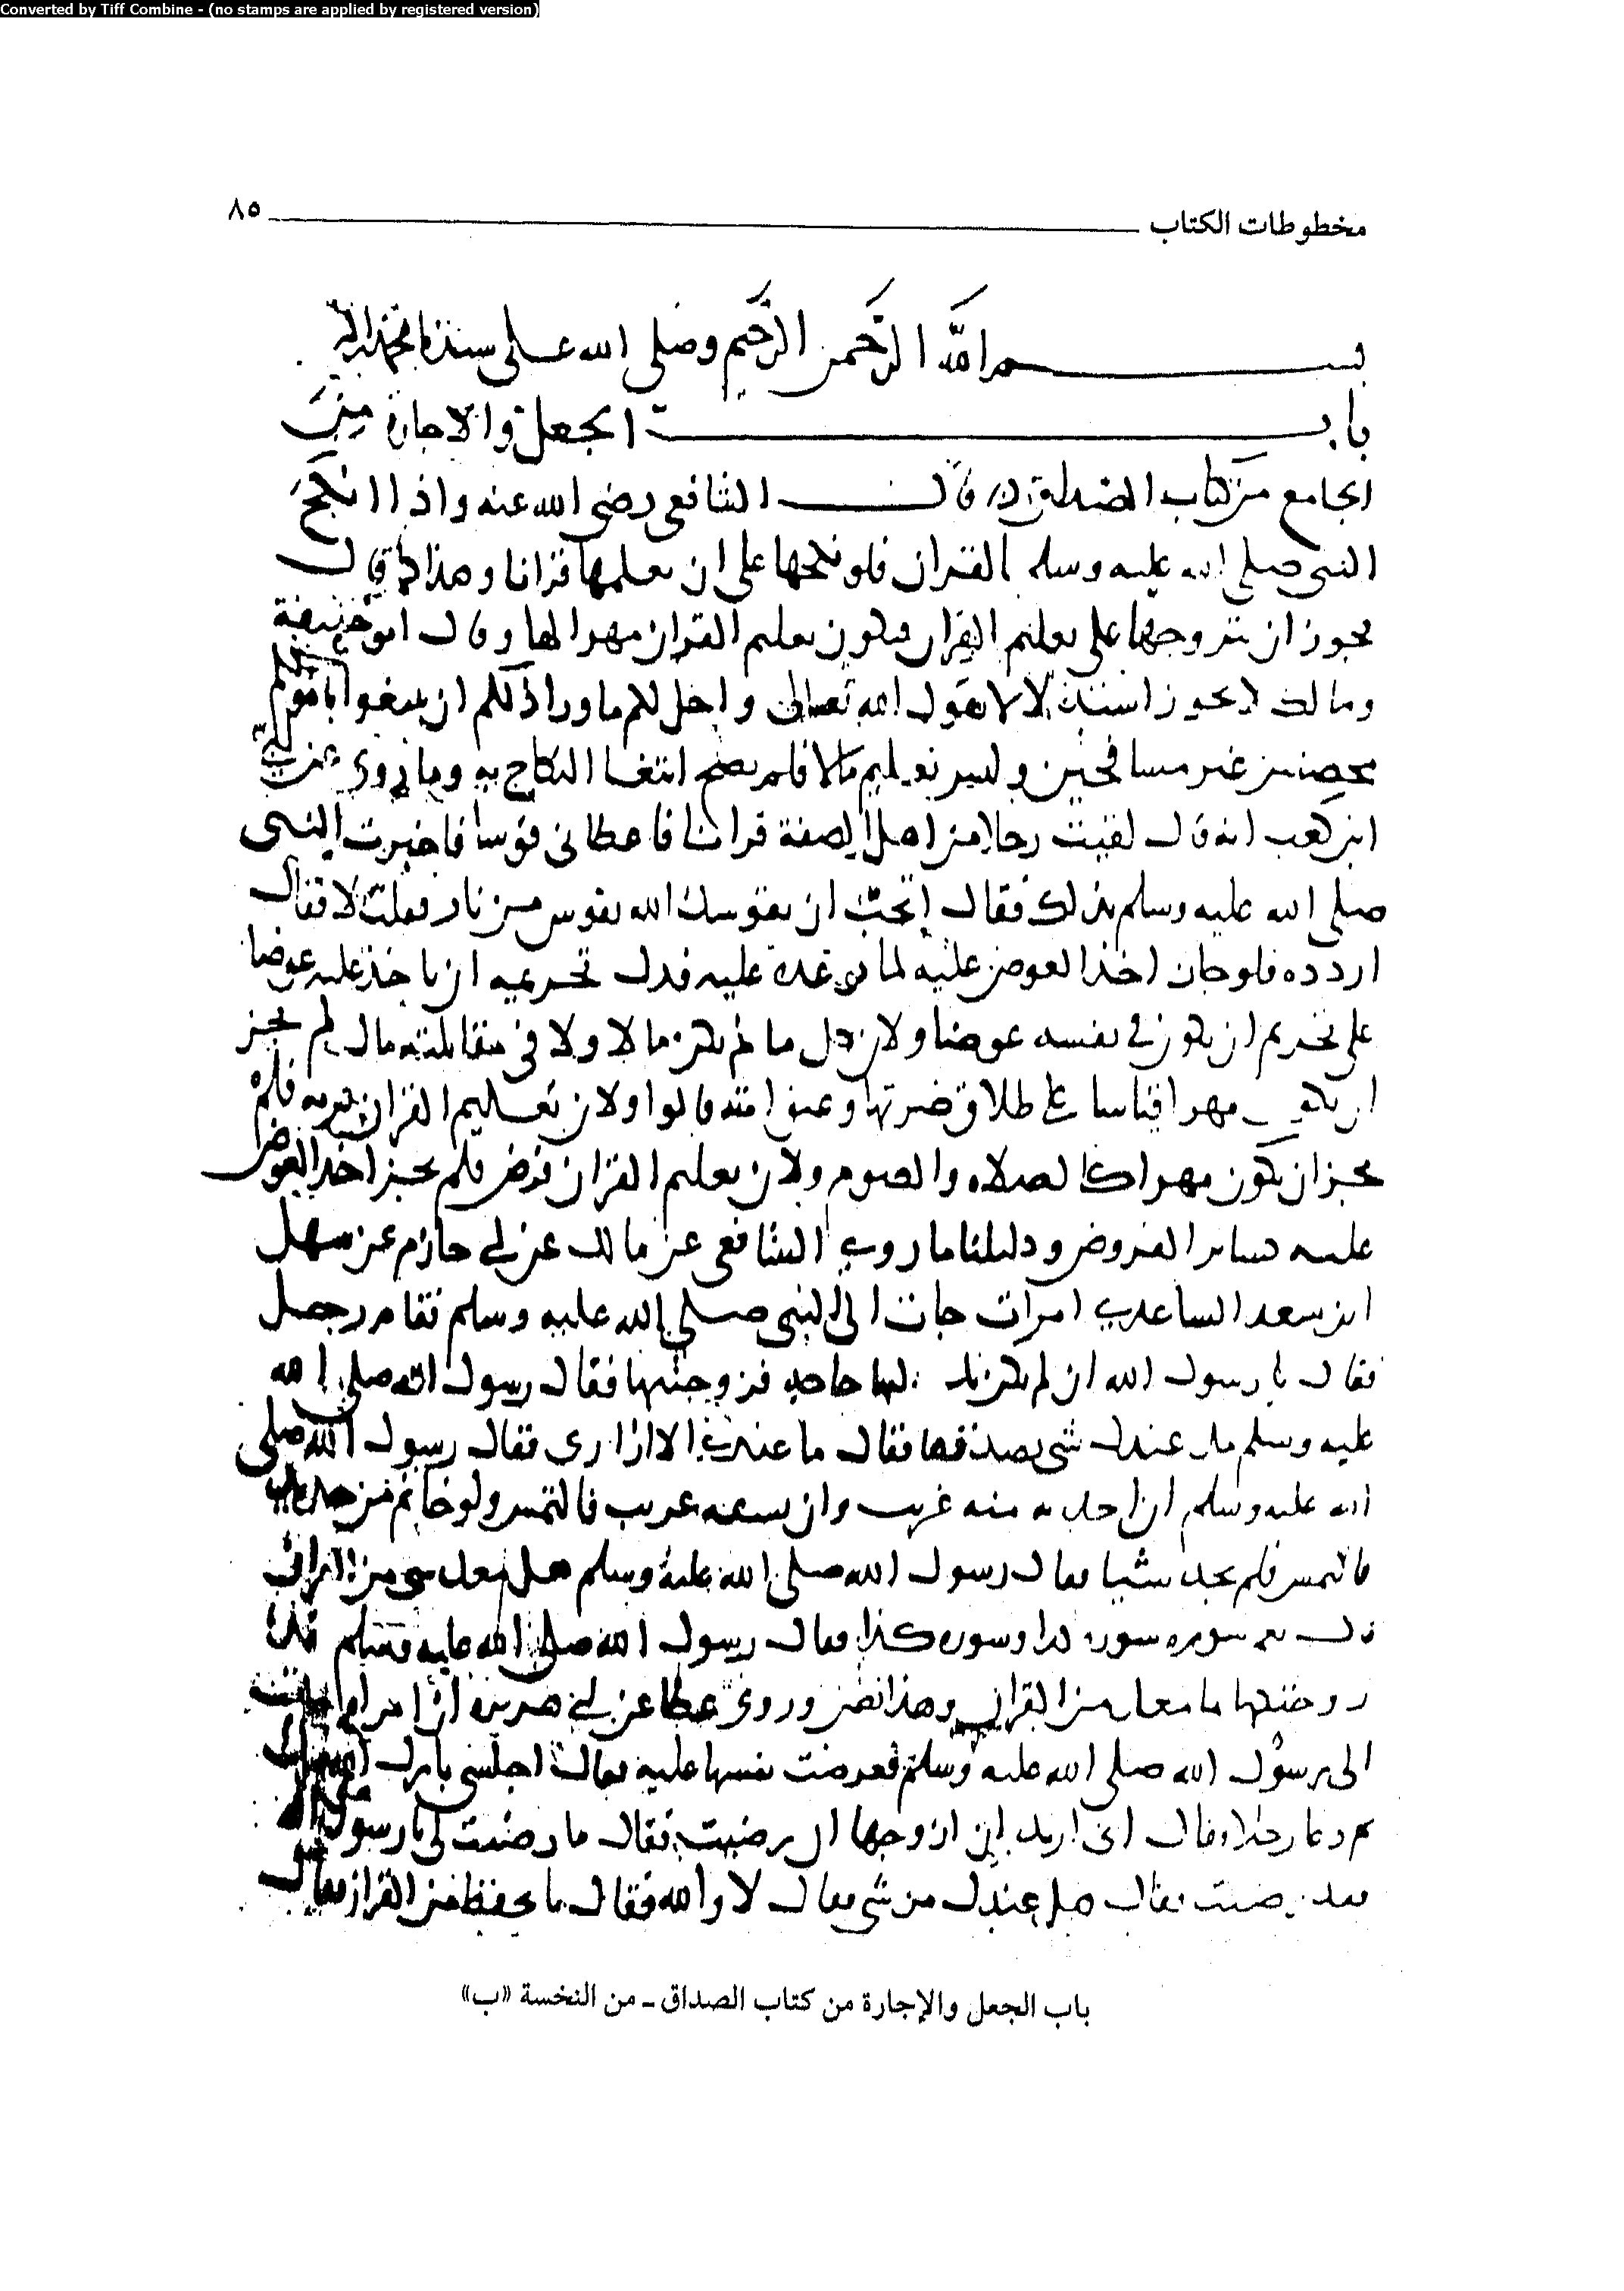 Converted by Tiff Combine - (no stamps are applied by registered version)
مخطوطات الكتاب ٨٥
بسم الله الرحمن الرحيم وصلى الله على سيدنا محمد
باب الجعل والاجارة من
الجامع من كتاب الصداق قال الشافعي رضي الله عنه واذا انكح
النبي صلى الله عليه وسلم بالقران فلو نكحها على ان يعلمها قرانا وهذا كما قال
يجوز ان يتزوجها على تعليم القران فيكون تعليم القران مهرا لها وقال ابو حنيفة
ومالك لا يجوز استدلالا بقول الله تعالى واحل لكم ما ورا ذلكم ان تبتغوا باموالكم
محصنين غير مسافحين وليس تعليم مالا فلم يصح ابتغا النكاح به وما روي عن ابي
ابن كعب انه قال لقيت رجلا من اهل الصفة قرانا فاعطاني قوسا فاخبرت النبي
صلى الله عليه وسلم بذلك فقال اتحب ان يقوسك الله بقوس من نار فقلت لا فقال
اردده فلو جاز اخذ العوض عليه لما توعده عليه فدل تحريمه ان ياخذ عليه عوضا
على تحريم ان يكون في نفسه عوضا ولان كل ما لم يكن مالا ولا في مقابلته مال لم يجز
ان يكون مهرا قياسا على طلاق ضرتها وعتق امته قالوا ولان تعليم القران قربه فلم
يجز ان يكون مهرا كالصلاه والصوم ولان تعليم القران فرض فلم يجز اخذ العوض
عليه كساير الفروض ودليلنا ما روى الشافعي عن مالك عن ابي حازم عن سهل
ابن سعد الساعدي امرات جات الى النبي صلى الله عليه وسلم فقام رجل
فقال يا رسول الله ان لم يكن لك بها حاجه فزوجنيها فقال رسول الله صلى الله
عليه وسلم هل عندك شي تصدقها فقال ما عندي الا ازاري فقال رسول الله صلى
الله عليه وسلم ان وان فالتمس ولو خاتم من حديد
فالتمس فلم يجد شيا فقال رسول الله صلى الله عليه وسلم هل معك شي من القران
قال نعم سوره سورة كذا وسوره كذا فقال رسول الله صلى الله عليه وسلم قد
زوجتكها بما معك من القران وهذا نص وروى عطا عن ابي هريره ان امراه جات
الى رسول الله صلى الله عليه وسلم فعرضت نفسها عليه فقال اجلسي بارك الله
ثم دعا رجلا وقال اني اريد ان ازوجها ان رضيت فقال ما رضيت لي يا رسول الله
فقد رضيت فقال هل عندك من شي فقال لا والله فقال ما تحفظ من القران فقال
باب الجعل والإجارة من كتاب الصداق ـ من النخسة «ب»